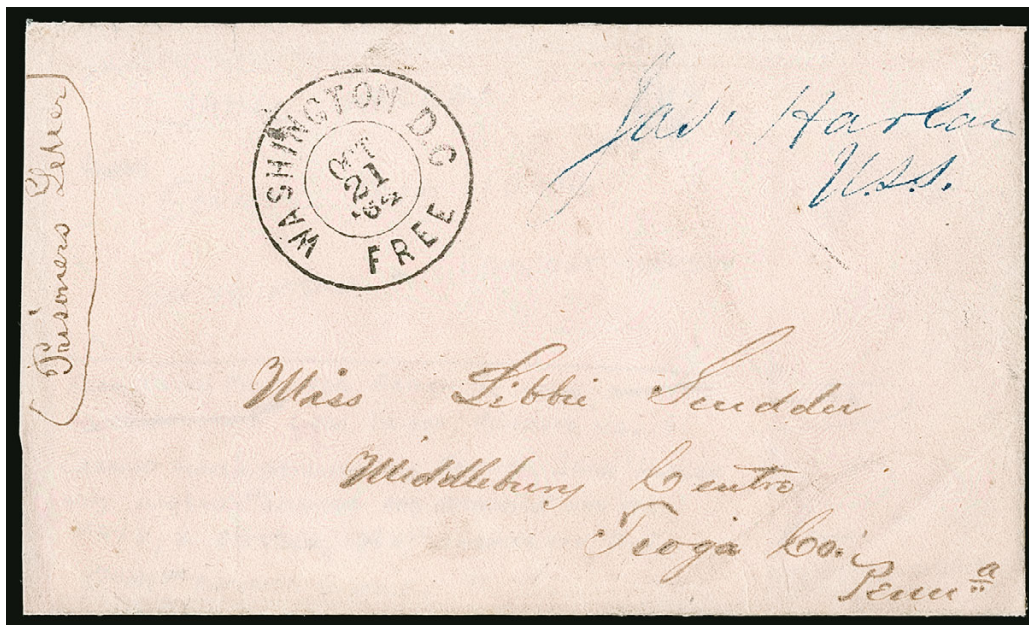 Prisoners Letter
WASHINGTON D.C
OCT
1
FREE
Jas. Harlan
U.S.S.
Miss Libbie Scudder
Middlebury Centre
Tioga Co.
Penna